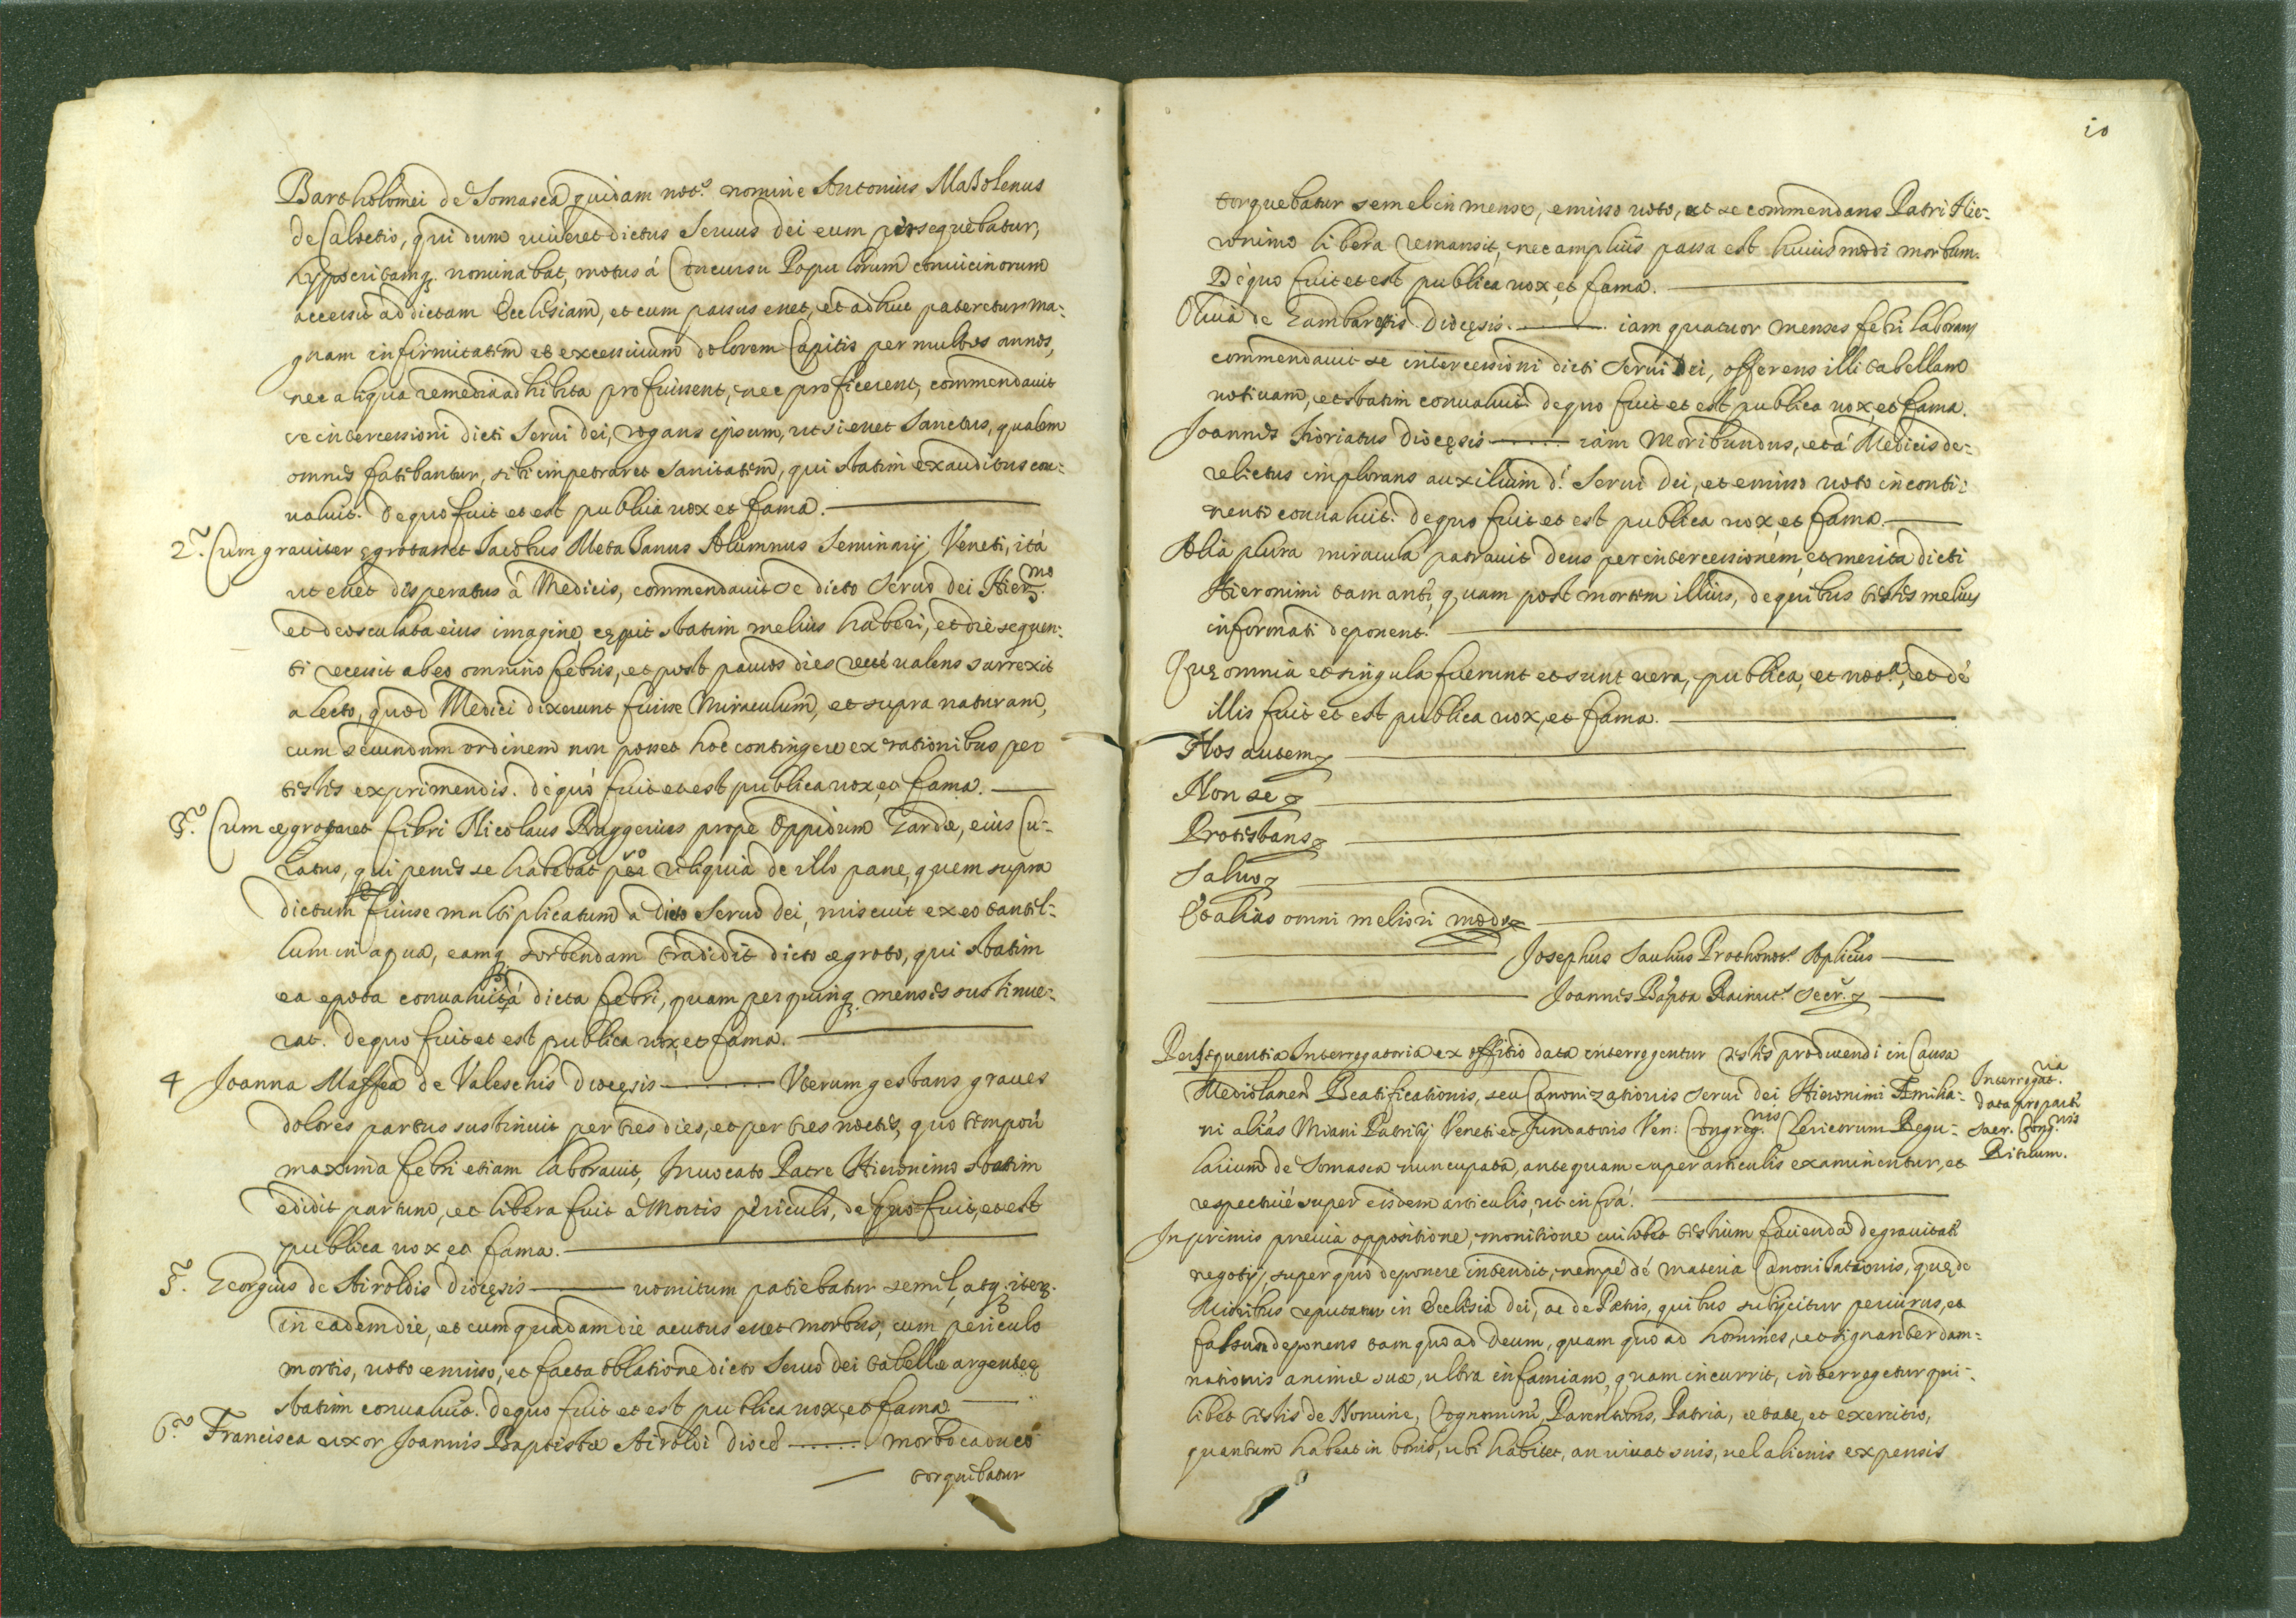 Bartholomei de Somasca quidam not.s nomine Antonius Mazolenus
de Caloltio, qui dum viueret dictus Seruus dei eum persequebatur,
hyppocritamq; nominabat, motus á Concursu Populorum conuicinorum
accessit ad dictam Ecclesiam, et cum passus esset, et adhuc pateretur ma-
gnam infirmitatem et excessiuum dolorem Capitis per multos annos,
nec aliqua remedia adhibita profuissent, nec proficerent, commendauit
se intercessioni dicti Serui dei, rogans ipsum, ut si esset Sanctus, qualem
omnes fatebantur, sibi impetraret sanitatem, qui statim exauditus con-
ualuit. de quo fuit et est publica uox et fama.
2.o Cum grauiter ęgrotasset Jacobus Alumnus Seminarij Veneti, ità
ut esset desperatus á Medicis, commendauit se dicto Seruo dei Hier.mo
et deosculata eius imagine, cępit statim melius haberi, et die sequen-
ti recessit ab eo omnino febris, et post paucos dies recté ualens surrexit
a lecto, quod Medici dixerunt fuisse Miraculum, et supra naturam,
cum secundum ordinem non posset hoc contingere ex rationibus per
testes exprimendis. de quo fuit et est publica uox, et fama.
3.o Cum ægrotaret febri Nicolaus Ruggerius prope Oppidum Gardæ, eius Cu-
ratus, qui penes se habebat pro reliquia de illo pane, quem supra
dictum fuisse multiplicatum a dicto Seruo dei, miscuit ex eo tantil-
lum in aqua, eamq; sorbendam tradidit dicto ægroto, qui statim
ea epota conualuit á dicta febri, quam per quinq; menses sustinue-
rat. de quo fuit et est publica uox, et fama.
4 Joanna Maffea de Valeschis diocęsis ........ Vterum gestans graues
dolores partus sustinuit per tres dies, et per tres noctes, quo tempore
maxima febri etiam laborauit, Inuocato Patre Hieronimo statim
edidit partum, et libera fuit à Mortis periculo, de quo fuit, et est
publica uox, et fama.
5.o Georgius de Airoldis diocęsis uomitum patiebatur semel, atq; iter.
in eadem die, et cum quadam die acutus esset morbus, cum periculo
mortis, uoto emisso, et facta oblatione dicto Seruo dei tabellæ argenteę
statim conualuit. de quo fuit et est publica uox, et fama
6.o Francisca uxor Joannis Baptistæ Airoldi dioces ........ morbo caduco
torquebatur
10
torquebatur semel in mense, emisso uoto, et se commendans Patri Hie-
ronimo libera remansit, nec amplius passa est huiusmodi morbum.
De quo fuit et est publica uox, et fama.
Oliua de Gambarottis Diocęsis. ........ iam quatuor menses febri laborans
commendauit se intercessioni dicti Serui Dei, offerens illi tabellam
uotiuam, et statim conualuit. de quo fuit et est publica uox, et fama.
Joannes diocęsis ........ iam Moribundus, et á Medicis de-
relictus implorans auxilium d.i Serui Dei, et emisso uoto inconti-
nenti conualuit. de quo fuit et est publica uox, et fama.
Alia plura miracula patrauit deus per intercessionem, et merita dicti
Hieronimi tam ante, quam post mortem illius, de quibus testes melius
informati deponent.
Quę omnia et singula fuerunt et sunt uera, publica, et not.a, et de
illis fuit et est publica uox, et fama.
Hos autem
Non se
Protestans
Saluo
Et alias omni meliori modo
Josephus Saulius Prothonot.s Aplicus
Joannes Bapta Rainut.s Secr.s
Per sequentia Interrogatoria ex offitio data interrogentur testes producendi in Causa
Mediolanen Beatificationis, seu Canonizationis Serui dei Hieronimi Æmilia-
ni aliàs Miani Patritij Veneti et fundatoris Ven: Congreg.nis Clericorum Regu-
larium de Somasca nuncupata, antequam super articulis examinentur, et
respectiué super eisdem articulis, ut infrà.
Interrogat.ria
data pro parte
Sacr. Cong.nis
Rituum.
In primis preuia oppositione, monitione cuilibet testium facienda de grauitate
negotij, super quo deponere intendit, nempé dé materia Canonizationis, quę de
Maioribus reputatur in Ecclesia dei, ac de Pœnis, quibus subijcitur periurus, et
falsum deponens tam quo ad Deum, quam quo ad homines, et signanter dam-
nationis animæ suæ, ultra infamiam, quam incurrit, interrogetur qui-
libet testis de Nomine, Cognomine, Parentibus, Patria, ætate, et exercitio,
quantum habeat in bonis, ubi habitet, an uiuat suis, uel alienis expensis